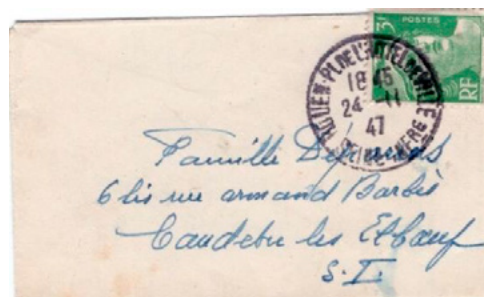 POSTES
3F
RF
ROUEN-PL. DE L'HOTEL DE VILLE
18 45
24-11
47
SEINE-INFRE
Famille
6 bis rue armand Barbès
Caudebec les Elbeuf
S. I.